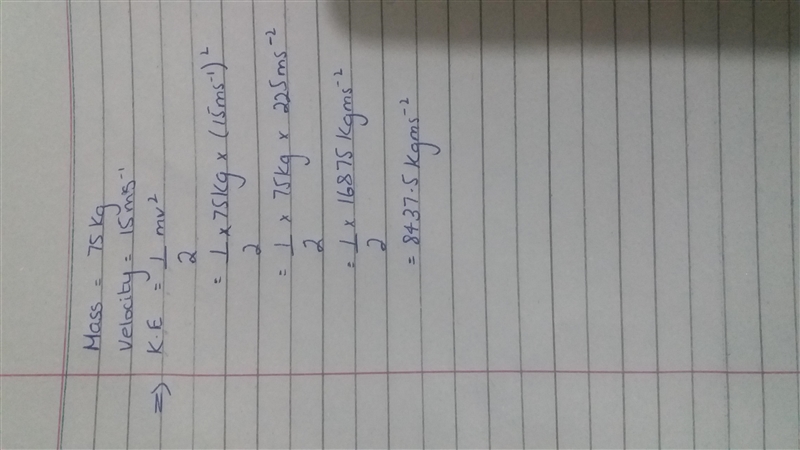 Mass = 75 Kg
Velocity = 15 ms⁻¹
=> K.E = 1/2 mv²
= 1/2 x 75Kg x (15ms⁻¹)²
= 1/2 x 75Kg x 225ms⁻²
= 1/2 x 16875 Kgms⁻²
= 8437.5 Kgms⁻²